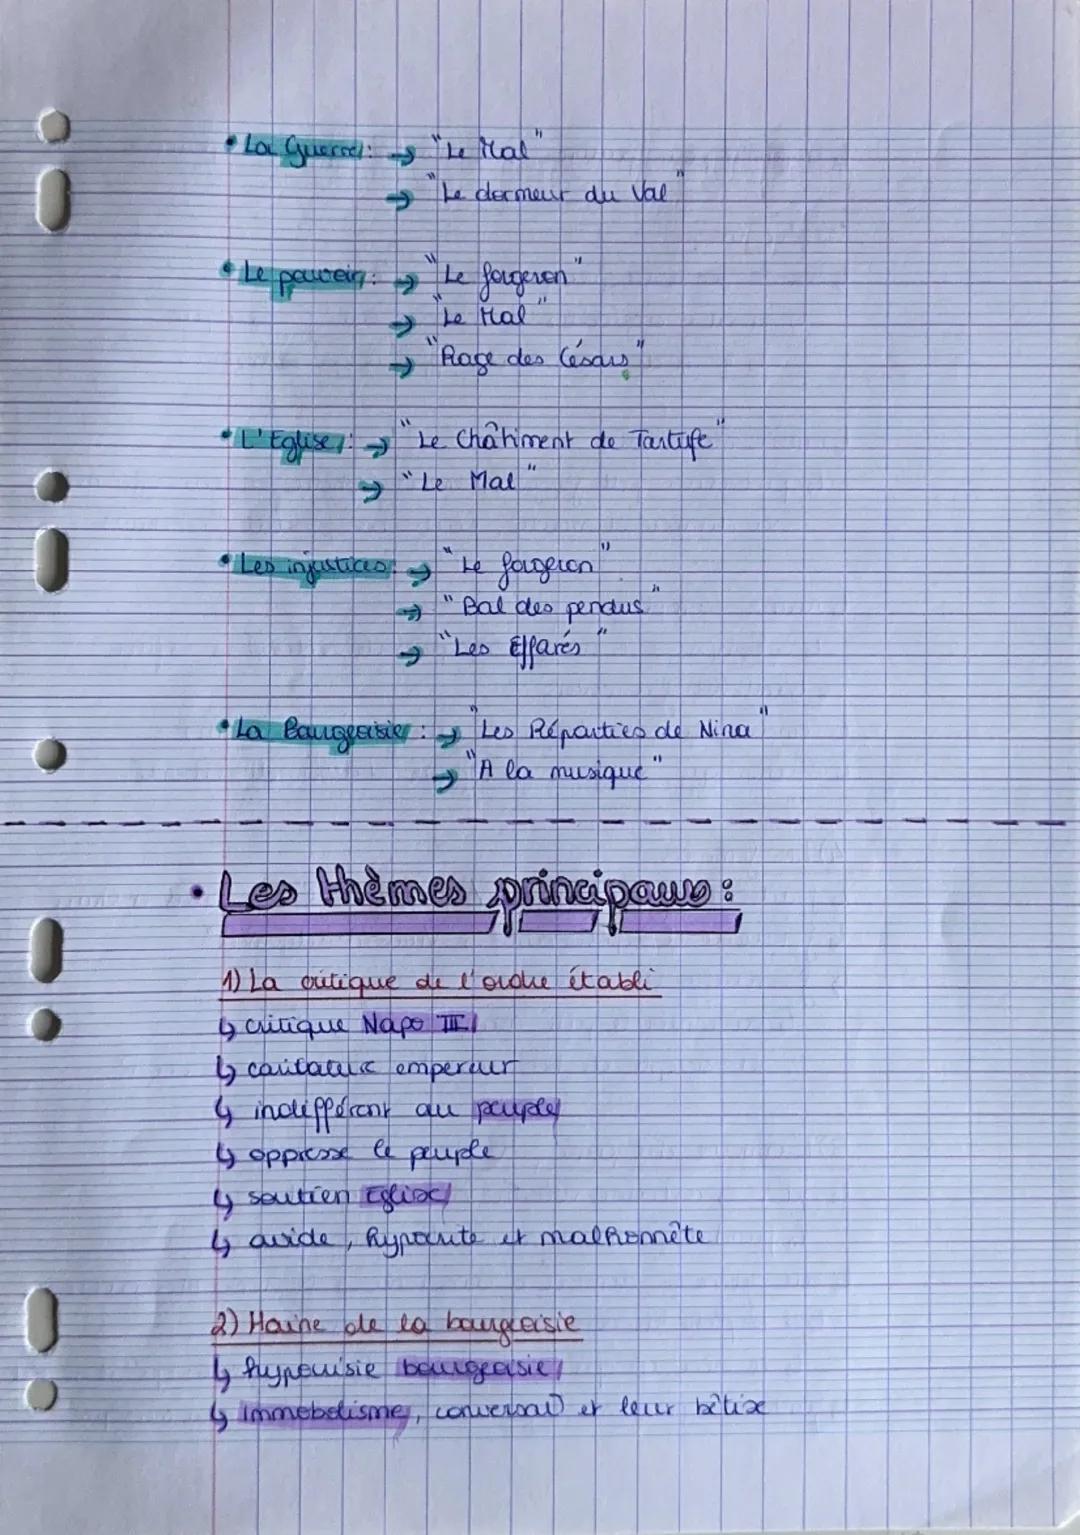 • La Guerre : → "Le Mal"
→ "Le dormeur du Val"
• Le pouvoir : → "Le forgeron"
→ "Le Mal"
→ "Rage des Césars"
• L'Eglise : → "Le Châtiment de Tartufe"
→ "Le Mal"
• Les injustices : → "Le forgeron"
→ "Bal des pendus"
→ "Les Effarés"
• La Bourgeoisie : → "Les Réparties de Nina"
→ "A la musique"
• Les thèmes principaux :
1) La critique de l'ordre établi
↳ critique Napo III
↳ caricature empereur
↳ indifférent au peuple
↳ oppresse le peuple
↳ soutien Eglise
↳ avide, hypocrite et malhonnête
2) Haine de la bourgeoisie
↳ hypocrisie bourgeoisie
↳ immobolisme, conversat° et leur bêtise